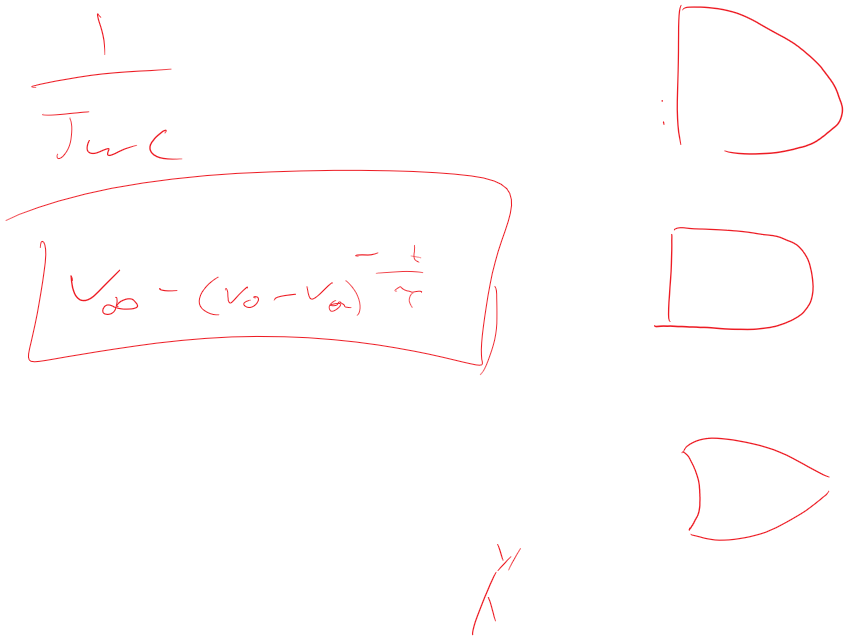 1
JWC
V∞ - (V0 - V∞)^-t/τ